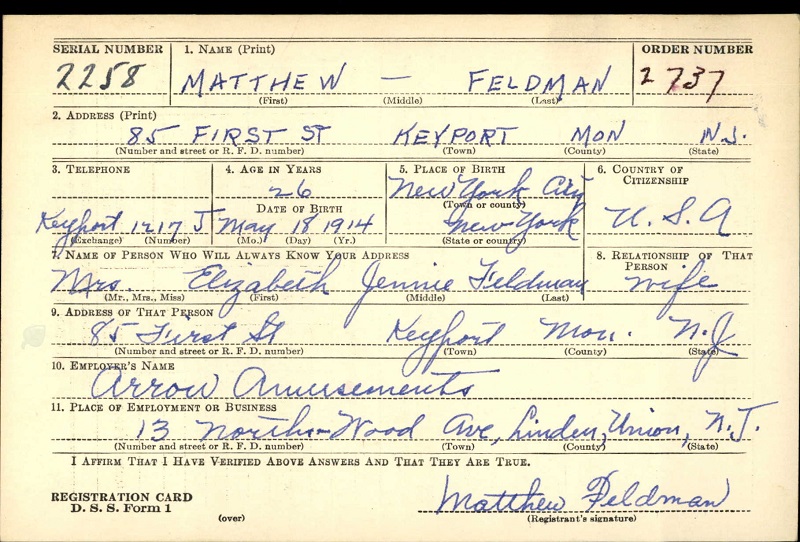 SERIAL NUMBER 1. NAME (Print) ORDER NUMBER
2258 MATTHEW — FELDMAN 2737
(First) (Middle) (Last)
2. ADDRESS (Print)
85 FIRST ST KEYPORT MON N.J.
(Number and street or R. F. D. number) (Town) (County) (State)
3. TELEPHONE 4. AGE IN YEARS 5. PLACE OF BIRTH 6. COUNTRY OF CITIZENSHIP
26 New York City
DATE OF BIRTH (Town or county)
Keyport 1217 J May 18 1914 New York U.S.A
(Exchange) (Number) (Mo.) (Day) (Yr.) (State or country)
7. NAME OF PERSON WHO WILL ALWAYS KNOW YOUR ADDRESS 8. RELATIONSHIP OF THAT PERSON
Mrs. Elizabeth Jennie Feldman wife
(Mr., Mrs., Miss) (First) (Middle) (Last)
9. ADDRESS OF THAT PERSON
85 First St Keyport Mon. N.J
(Number and street or R. F. D. number) (Town) (County) (State)
10. EMPLOYER'S NAME
Arrow Amusements
11. PLACE OF EMPLOYMENT OR BUSINESS
13 North Wood Ave, Linden, Union, N.J.
(Number and street or R. F. D. number) (Town) (County) (State)
I AFFIRM THAT I HAVE VERIFIED ABOVE ANSWERS AND THAT THEY ARE TRUE.
REGISTRATION CARD Matthew Feldman
D. S. S. Form 1 (over) (Registrant's signature)